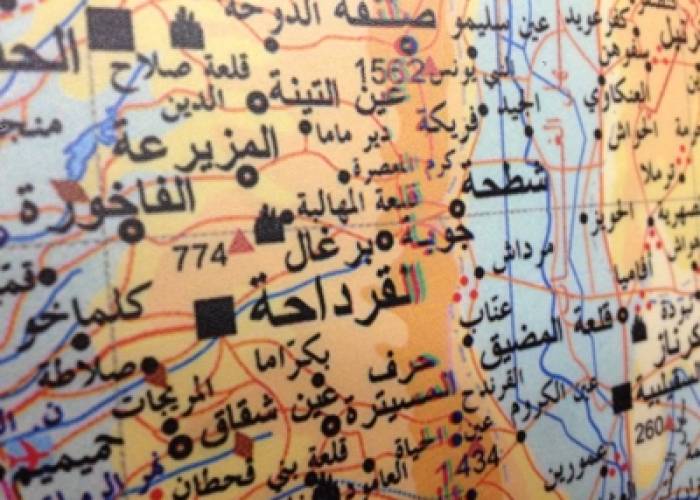 صلنفة الدوحة
عين سليمو
كفرعويد
سفوهن
قلعة صلاح
الدين
1562
النبي يونس
عين التينة
اجيد
العنكاوي
المزيرعة
دير ماما
فريكة
الحواش
المعصرة
كرم
شطحة
ترملا
الفاخورة
قلعة المهالبة
الحويز
774
برغال
جوبة
مرداش
أفاميا
القرداحة
عناب
قلعة المضيق
كلماخو
بكراما
حرف
المسيترة
صلاطة
المريجات
عين شقاق
عين الكروم
السقيلبية
260
قلعة بني قحطان
العامود
1434
عمورين